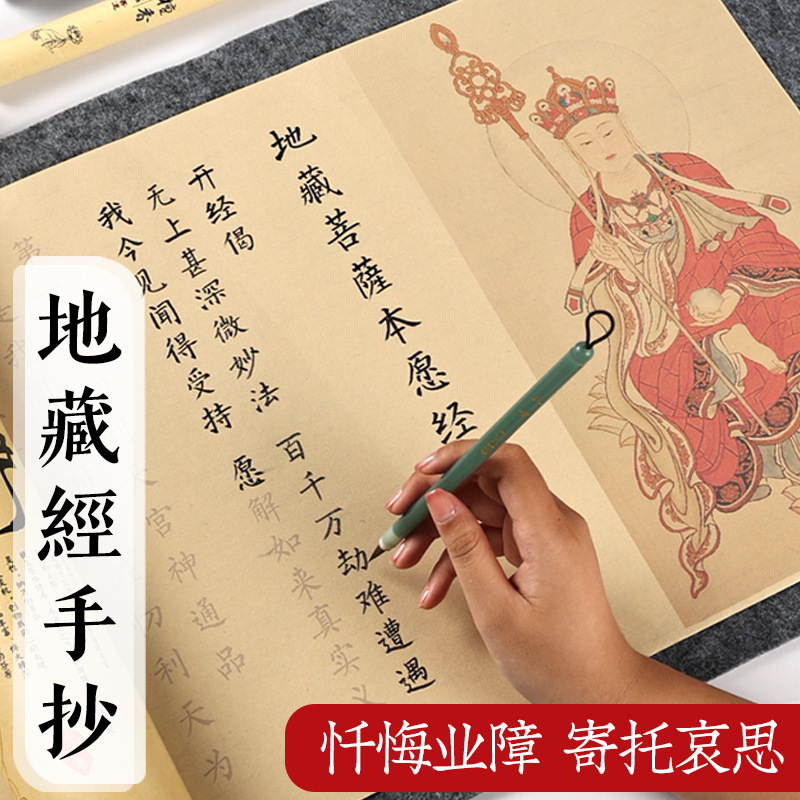 地藏菩薩本愿经
开经偈
无上甚深微妙法 百千万劫难遭遇
我今见闻得受持 愿解如来真实义
第 天宫神通品
是我 利天为
地藏經手抄
忏悔业障 寄托哀思